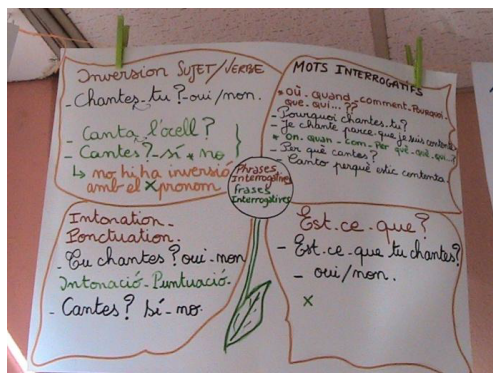 Inversion SUJET/VERBE
- Chantes-tu? oui/non.
- Canta l'ocell?
- Cantes? - sí * no
↳ no hi ha inversió
amb el X pronom.
MOTS INTERROGATIFS
* Où - quand - comment - Pourquoi -
que - qui...??
- Pourquoi chantes-tu?
- Je chante parce que je suis contente
* on - quan - com - Per què - què - qui...?
- Per què cantes?
- Canto perquè estic contenta.
Phrases
Interrogatives
frases
Interrogatives
Intonation -
Ponctuation.
- Tu chantes? oui - non
Intonació - Puntuació.
- Cantes? sí - no.
Est-ce-que?
- Est-ce-que tu chantes?
- oui/non.
X